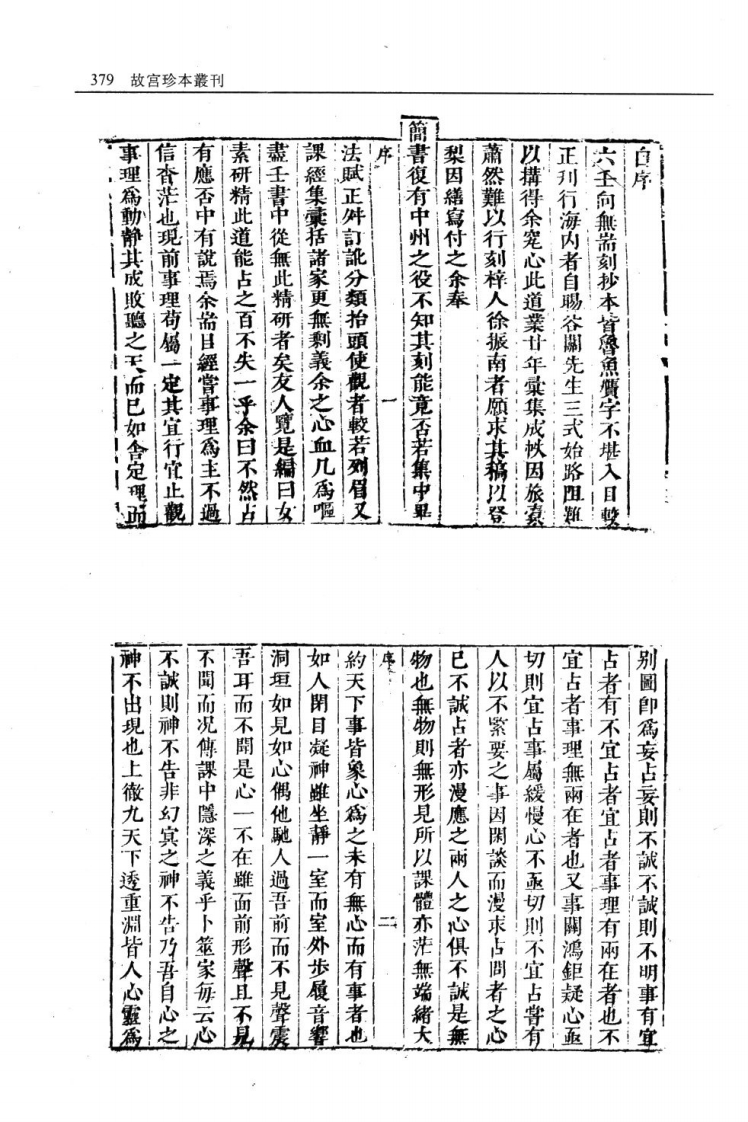 379 故宮珍本叢刊
自序
六壬向無耑刻抄本皆魯魚贋字不堪入目較
正刋行海内者自賜谷關先生三式始路阻難
以搆得余究心此道業廿年彙集成帙因旅橐
蕭然難以行刻梓人徐振南者願求其稿以登
梨因繕寫付之余奉
簡書復有中州之役不知其刻能竟否若集中畢
序 一
法賦正舛訂訛分類抬頭使觀者較若列眉又
課經集彙括諸家更無剩義余之心血几爲嘔
盡壬書中從無此精研者矣友人覽是編曰女
素研精此道能占之百不失一乎余曰不然占
有應否中有說焉余耑目經嘗事理爲主不過
信杳茫也現前事理苟屬一定其宜行宜止觀
事理爲動靜其成敗聽之天而已如舍定理而
別圖卽爲妄占妄則不誠不誠則不明事有宜
占者有不宜占者宜占者事理有兩在者也不
宜占者事理無兩在者也又事關鴻鉅疑心亟
切則宜占事屬緩慢心不亟切則不宜占嘗有
人以不緊要之事因閑談而漫求占問者之心
已不誠占者亦漫應之兩人之心俱不誠是無
物也無物則無形見所以課體亦茫無端緒大
序 二
約天下事皆象心爲之未有無心而有事者也
如人閉目凝神雖坐靜一室而室外步履音響
洞垣如見如心偶他馳人過吾前而不見聲震
吾耳而不聞是心一不在雖面前形聲且不見
不聞而况傳課中隱深之義乎卜筮家每云心
不誠則神不告非幻㝠之神不告乃吾自心之
神不出現也上徹九天下透重淵皆人心靈爲